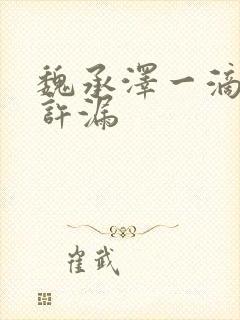 魏承澤一滴
許漏
崔武